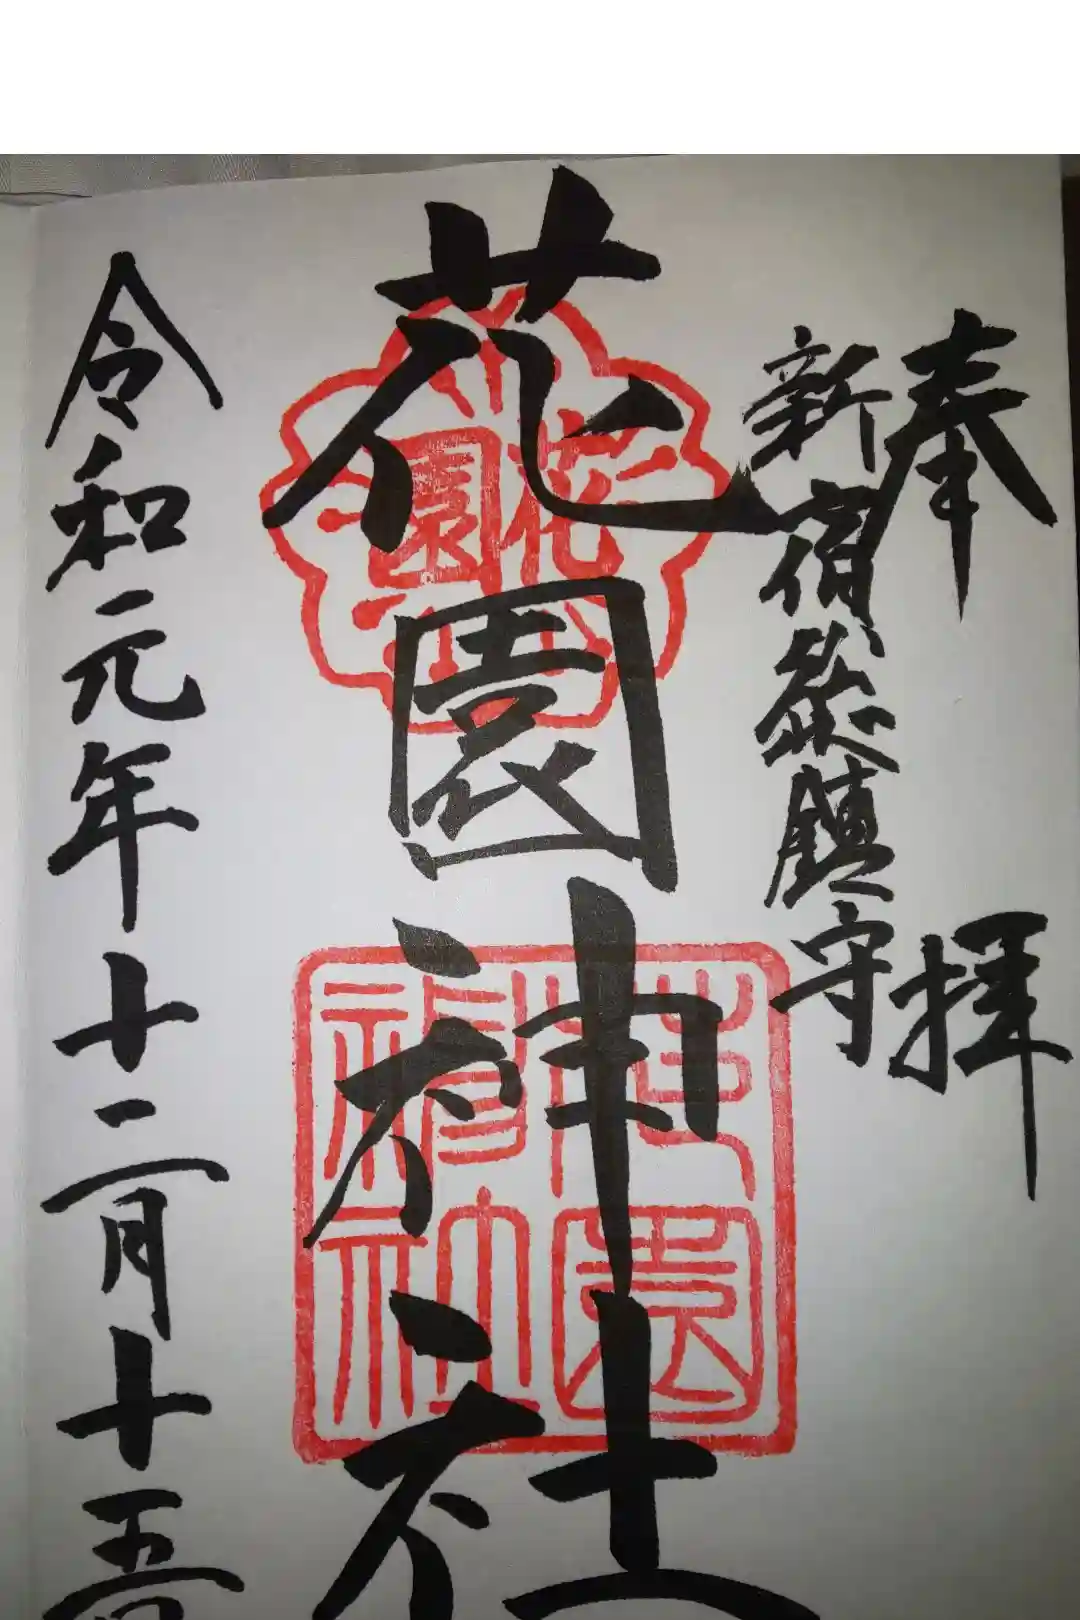 奉拝
新宿総鎮守
花園神社
令和元年十二月十五日
花園
花園
神社